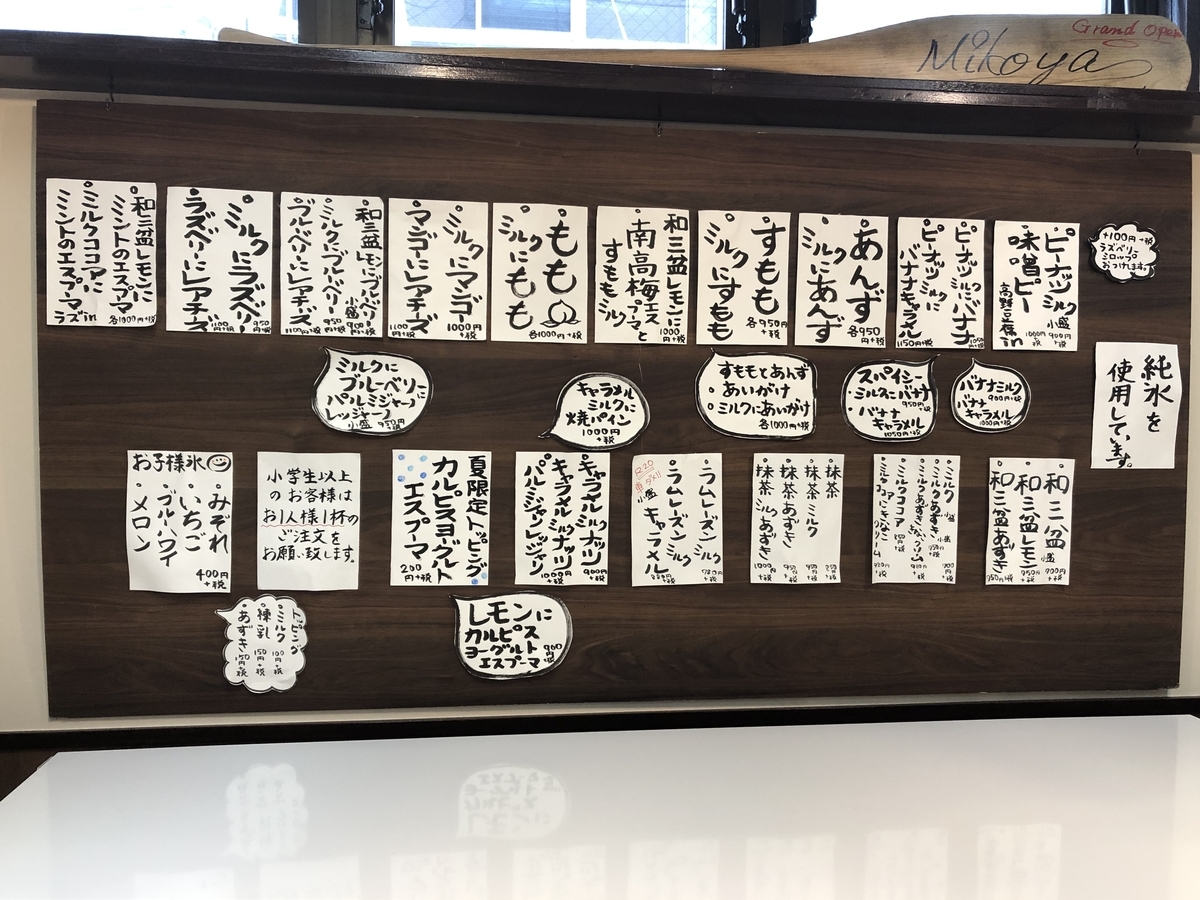 Grand Open
Mikoya
ピーナッツミルク
小盛 900円+税
味噌ピー
高野豆腐in
1000円+税
ピーナッツミルクにバナナ
1050円+税
ピーナッツミルクに
バナナキャラメル
1150円+税
あんず
ミルクにあんず
各950円+税
すもも
ミルクにすもも
各950円+税
和三盆レモンに
南高梅エスプーマと
すももミルク
1000円+税
もも
ミルクにもも
各1000円+税
ミルクにマンゴー
1000円+税
マンゴーにレアチーズ
1100円+税
和三盆レモンにブルーベリー
小盛 900円+税
ミルクにブルーベリー
950円+税
ブルーベリーにレアチーズ
1100円+税
ミルクにラズベリー
950円+税
ラズベリーにレアチーズ
1100円+税
和三盆レモンに
ミントのエスプーマ
ミルクココアに
ミントのエスプーマ
ラズin
各1000円+税
+100円+税
ラズベリー
シロップ
おつけします。
純氷を
使用しています。
ミルクに
ブルーベリーに
パルミジャーノ
レッジャーノ
小盛 950円+税
キャラメル
ミルクに
焼パイン
1000円
+税
すももとあんず
あいがけ
ミルクにあいがけ
各1000円+税
スパイシー
ミルクにバナナ
950円+税
バナナ
キャラメル
1050円+税
バナナミルク
900円+税
バナナ
キャラメル
1000円+税
和三盆
小盛 900円+税
和三盆レモン
950円+税
和三盆あずき
950円+税
ミルク
小盛
ミルクあずき
ミルクココア
抹茶
抹茶ミルク
抹茶あずき
抹茶ミルクあずき
1000円+税
ラムレーズンミルク
ラムレーズン
キャラメルミルク
小盛
キャラメルミルクナッツ
900円+税
キャラメルミルクナッツ
パルミジャーノレッジャーノ
1000円+税
夏限定トッピング
カルピスヨーグルト
エスプーマ
200円+税
小学生以上
のお客様は
お1人様1杯の
ご注文を
お願い致します。
お子様氷
みぞれ
いちご
ブルーハワイ
メロン
400円
+税
トッピング
ミルク 100円+税
練乳 150円+税
あずき 150円+税
レモンに
カルピス
ヨーグルト
エスプーマ
900円+税